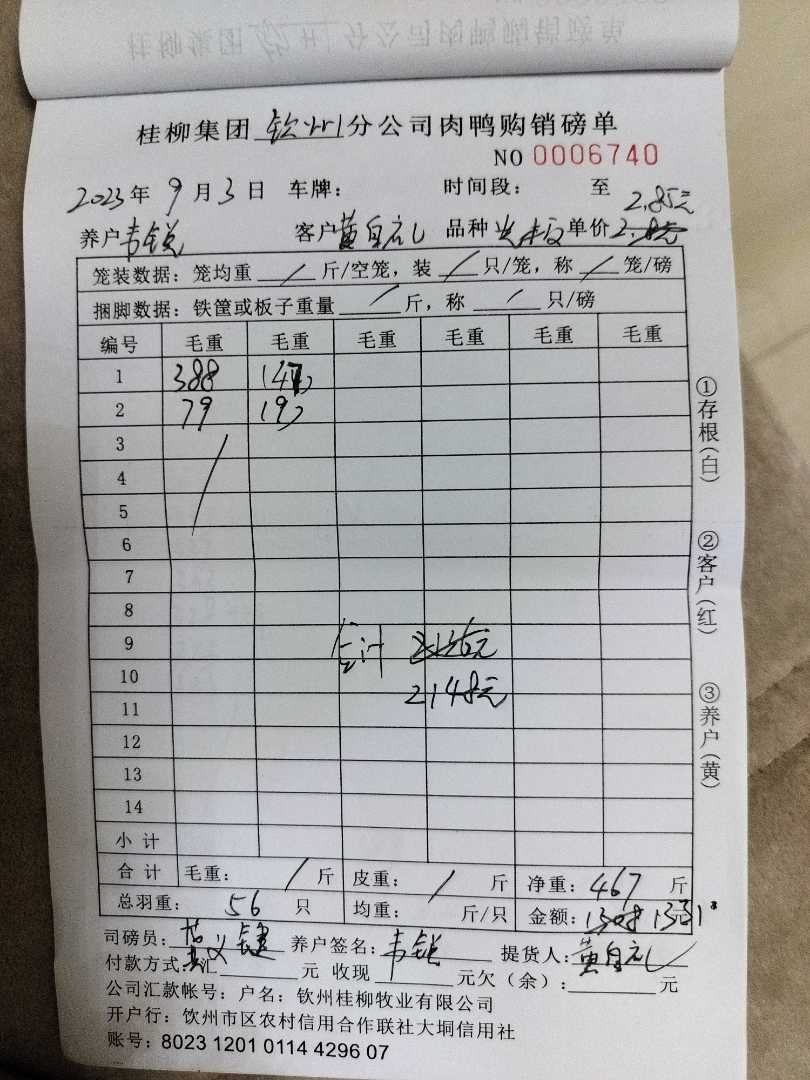 桂柳集团钦州分公司肉鸭购销磅单
NO 0006740
2023年9月3日 车牌: 时间段: 至
2.85元
养户韦锐 客户黄自礼 品种 板 单价2.8元
笼装数据: 笼均重 / 斤/空笼, 装 / 只/笼, 称 / 笼/磅
捆脚数据: 铁筐或板子重量 / 斤, 称 / 只/磅
编号 毛重 毛重 毛重 毛重 毛重 毛重
1 388 (47)
2 79 (9)
3
4
5
6
7
8
9 合计
10 2148元
11
12
13
14
小计
合计 毛重: / 斤 皮重: / 斤 净重: 467 斤
总羽重: 56 只 均重: 斤/只 金额: 1331
司磅员: 义键 养户签名: 韦锐 提货人: 黄自礼
付款方式: 汇 元 收现 元欠(余): 元
公司汇款帐号: 户名: 钦州桂柳牧业有限公司
开户行: 钦州市区农村信用合作联社大垌信用社
账号: 8023 1201 0114 4296 07
①存根(白)
②客户(红)
③养户(黄)